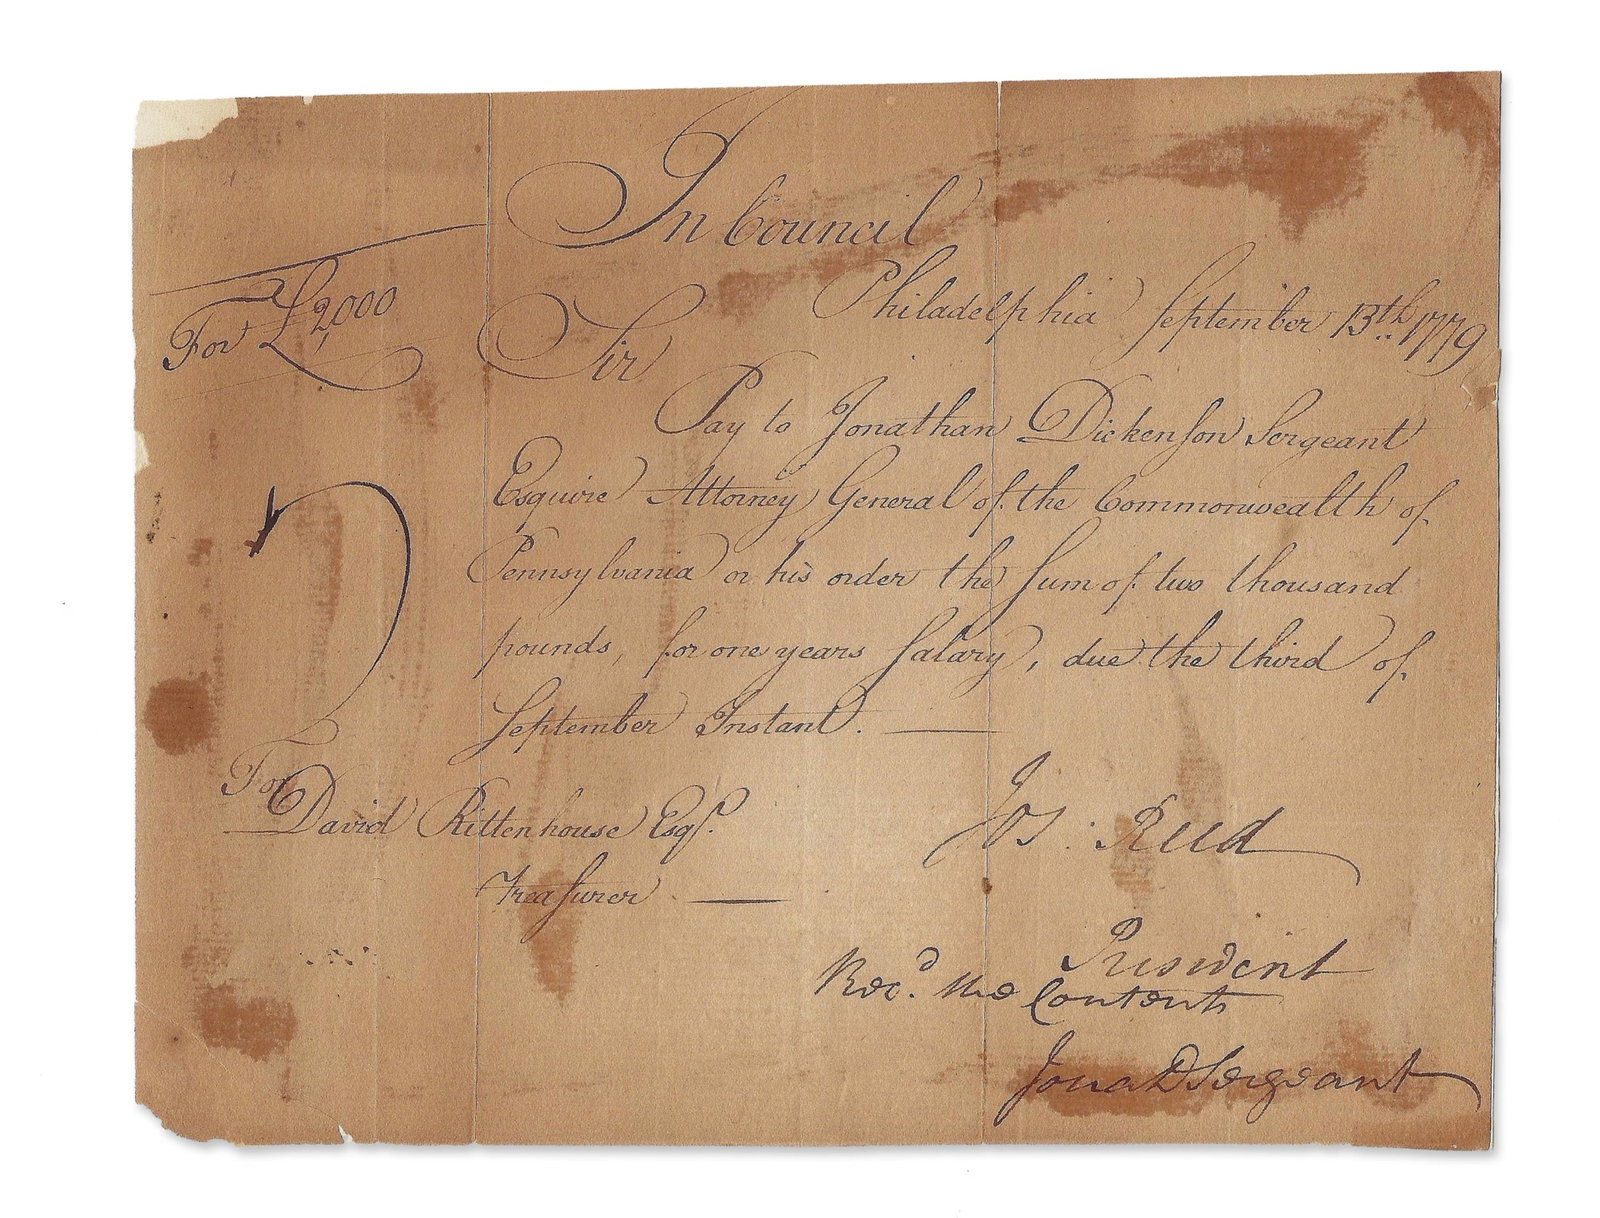 In Council
Philadelphia September 13th. 1779
For £2,000
Sir
Pay to Jonathan Dickenson Sergeant
Esquire Attorney General of the Commonwealth of
Pennsylvania or his order the Sum of two thousand
pounds, for one years Salary, due the third of
September Instant.
For
David Rittenhouse Esqr.
Treasurer
Jos: Reed
President
Recd. the Contents
Jona D Sergeant